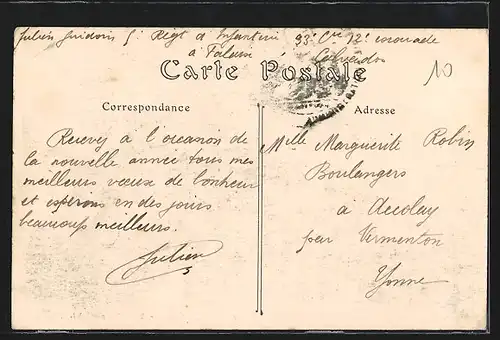 Julien Guidoux 5e Régt d Infanterie 33e Cie 12e escouade
à Falaise Calvados
Carte Postale
10
Correspondance
Adresse
Recevez à l'occasion de
la nouvelle année tous mes
meilleurs voeux de bonheur
et espérons en des jours
beaucoup meilleurs.
Julien
Melle Marguerite Robin
Boulangers
à Accolay
par Vermenton
Yonne